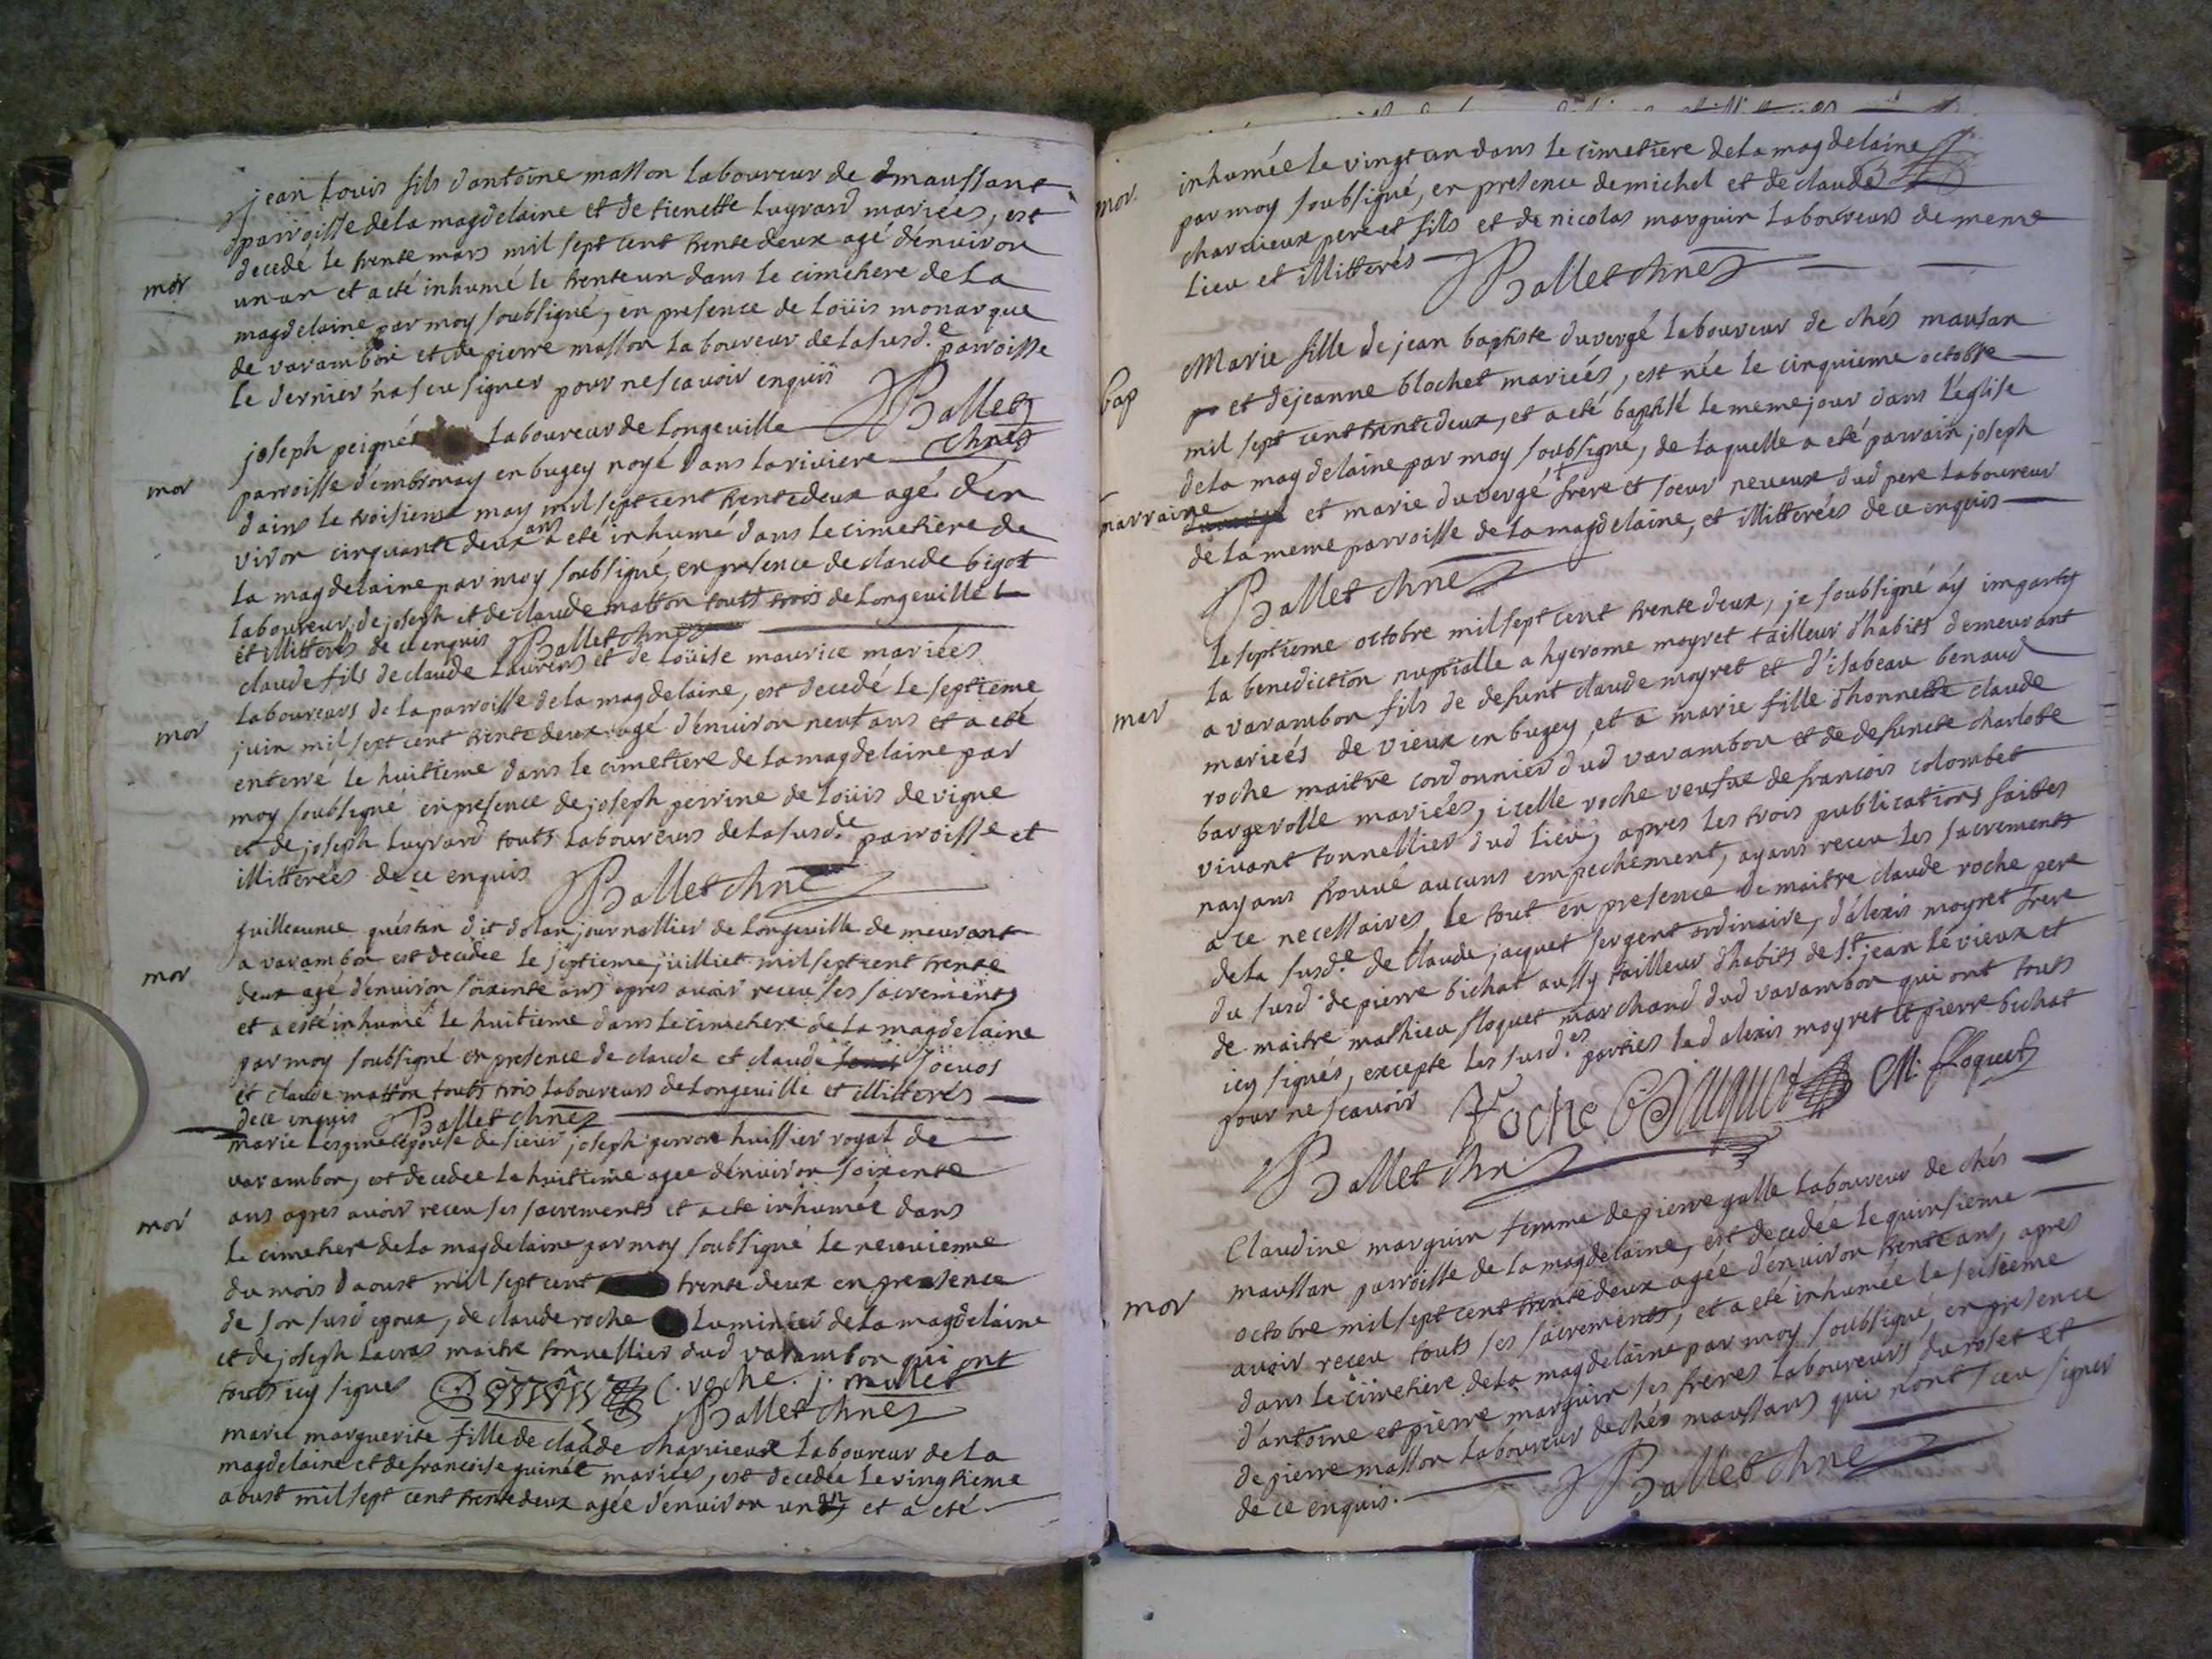 jean Louis fils d'antoine masson laboureur de maussant
parroisse de la magdelaine et de tienette Luyrard mariées, est
decedé le trente mars mil sept cent trente deux agé d'enuiron
mor
un an et a eté inhumé le trente un dans le cimetiere de La
magdelaine par moy soubsigné, en presence de Loüis monarque
de varambon et de pierre masson laboureur de la susd.e parroisse
le dernier na sceu signer pour ne scavoir enquis
Ballet chne
joseph peigné laboureur de Longeuille
mor
parroisse d'embronay en bugey noyé dans la riviere
dains le troisieme may mil sept cent trente deux agé d'en
viron cinquante deux ans a eté inhumé dans le cimetiere de
la magdelaine par moy soubsigné, en presence de claude bigot
laboureur, de joseph et de claude matton touts trois de Longeuille
et illitterés de ce enquis Ballet chne
claude fils de claude Laurens et de Loüise maurice mariées
laboureurs de la parroisse de la magdelaine, est decedé le septieme
mor
juin mil sept cent trente deux agé d'enuiron neuf ans et a eté
enterré le huitieme dans le cimetiere de la magdelaine par
moy soubsigné en presence de joseph perrine de Loüis de vigne
et de joseph Luyrard touts laboureurs de la susd.e parroisse et
illitterées de ce enquis Ballet chne
guilleaume questan dit dolan journallier de Longeuille demeurant
mor
a varambon est decedée le septieme juilliet mil sept cent trente
deux agé d'enuiron soixente ans apres avoir receu ses sacrements
et a esté inhumé le huitieme dans le cimetiere de la magdelaine
par moy soubsigné en presence de claude et claude
et claude matton touts trois laboureurs de Longeuille et illitterés
de ce enquis Ballet chne
marie epouse de sieur joseph perron huissier royal de
varambon, est decedée le huitieme agee d'enuiron soixente
mor
ans apres avoir receu ses sacrements et a eté inhumée dans
le cimetiere de la magdelaine par moy soubsigné le neuvieme
du mois d'aoust mil sept cent trente deux en presence
de son susd epoux, de claude roche Luminier de la magdelaine
et de joseph Lacras maitre tonnellier dud varambon qui ont
touts icy signes C. roche. j. mullet
Ballet chne
marie marguerite fille de claude charuieux laboureur de la
magdelaine et de francoise guinet mariées, est decedée le vingtieme
aoust mil sept cent trente deux agée d'enuiron un an et a eté
mor
inhumée le vingt un dans le cimetiere de la magdelaine
par moy soubsigné, en presence de michel et de claude
charuieux pere et fils et de nicolas marguin laboureurs de meme
lieu et illitterés Ballet chne
Marie fille de jean baptiste duvergé laboureur de chés mausan
bap
et de jeanne blochet mariées, est née le cinquieme octobre
mil sept cent trente deux, et a eté baptisé le meme jour dans l'eglise
de la magdelaine par moy soubsigné, de laquelle a eté parrain joseph
marraine et marie duvergé frere et soeur neveux dud pere laboureur
de la meme parroisse de la magdelaine, et illitterées de ce enquis
Ballet chne
Le septieme octobre mil sept cent trente deux, je soubsigné ay imparty
la benediction nuptialle a hyerome moyret tailleur d'habits demeurant
mar
a varambon fils de defunt claude moyret et d'isabeau benaud
mariées de vieux en bugey, et a marie fille d'honneste claude
roche maitre cordonnier dud varambon et de defuncte charlotte
bargerolle mariées, icelle roche veufue de francois colombet
vivant tonnellier dud lieu, apres les trois publications faittes
nayans trouvé aucuns empechement, ayans receu les sacrements
a ce necessaires, le tout en presence de maitre claude roche pere
de la susd.e de claude jacquet sergent ordinaire, d'alexis moyret frere
du susd. de pierre bichat aussy tailleur d'habits de s.t jean le vieux et
de maitre mathieu floquet marchand dud varambon qui ont touts
icy signés, excepte les susd.es parties led alexis moyret et pierre bichat
pour ne scavoir roche C Jacquet M. floquet
Ballet chne
Claudine marguin femme de pierre galle laboureur de chés
maussan parroisse de la magdelaine, est decedée le quinsieme
mor
octobre mil sept cent trente deux agée d'enuiron trente ans, apres
avoir receu touts ses sacrements, et a eté inhumée le seisieme
dans le cimetiere de la magdelaine par moy soubsigné, en presence
d'antoine et pierre marguin ses freres laboureurs du roset et
de pierre masson laboureur de chés maussans qui n'ont sceu signer
de ce enquis. Ballet chne